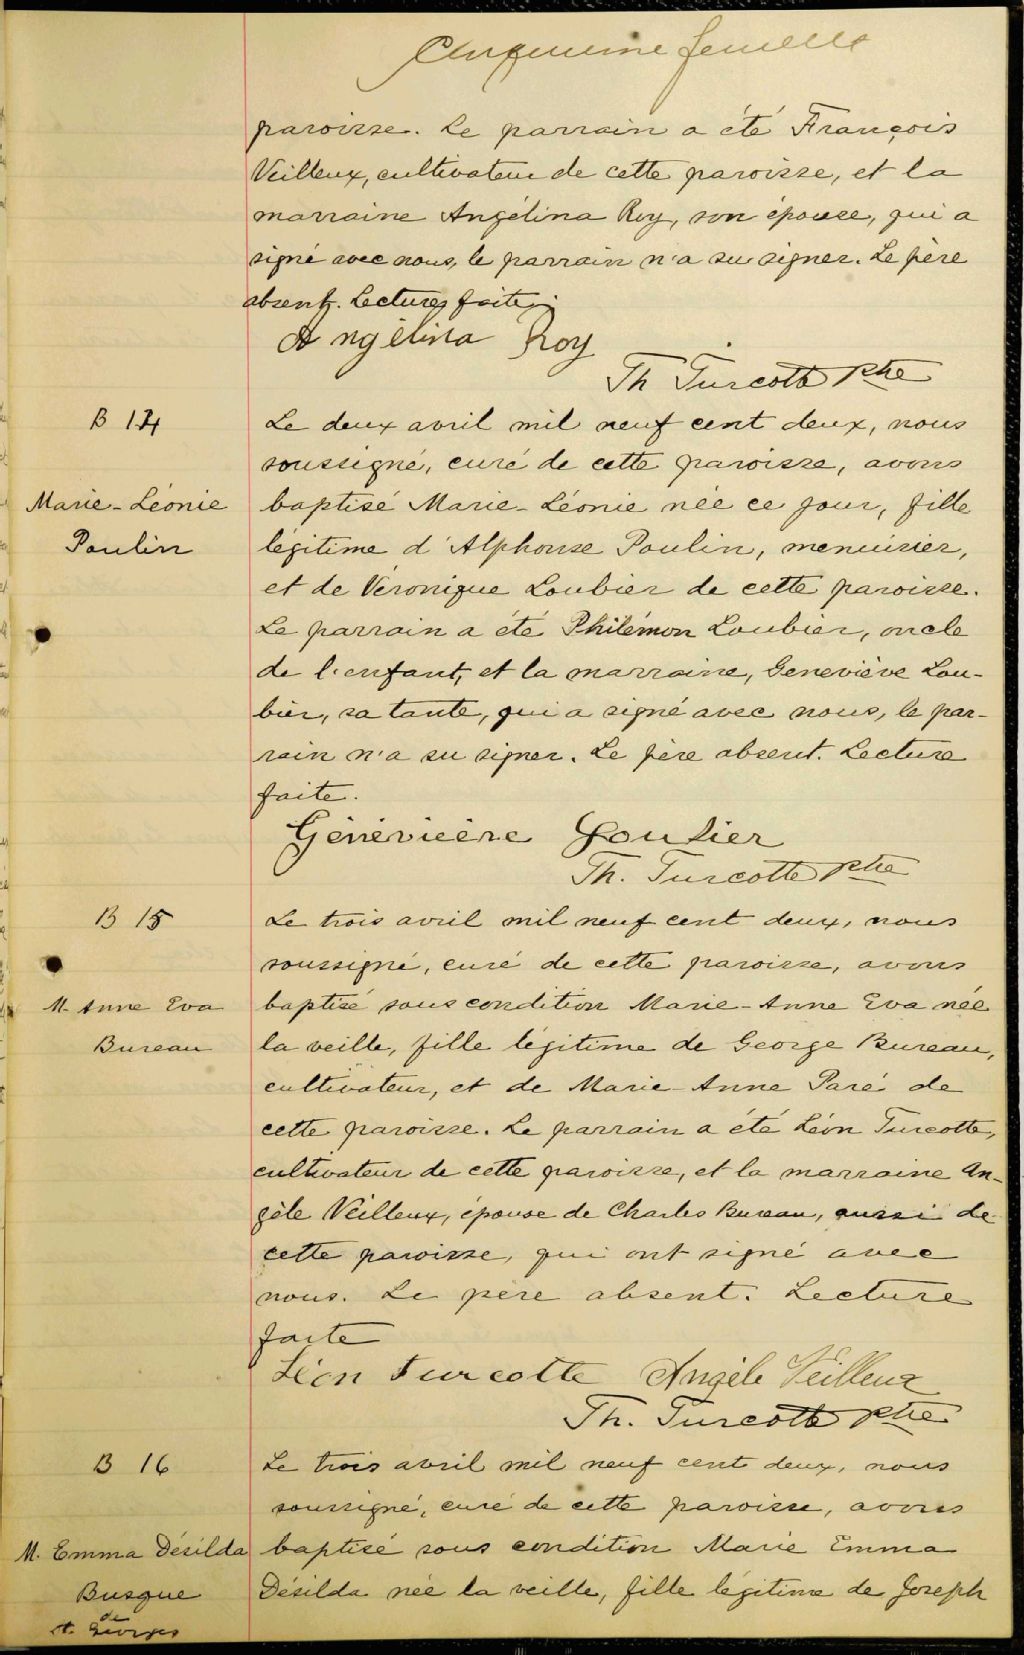 Cinquième feuillet
paroisse. Le parrain a été François
Veilleux, cultivateur de cette paroisse, et la
marraine Angélina Roy, son épouse, qui a
signé avec nous, le parrain n'a su signer. Le père
absent. Lecture faite.
Angélina Roy
Th Turcotte Ptre
B 14
Le deux avril mil neuf cent deux, nous
soussigné, curé de cette paroisse, avons
Marie-Léonie
baptisé Marie-Léonie née ce jour, fille
Poulin
légitime d'Alphonse Poulin, menuisier,
et de Véronique Loubier de cette paroisse.
Le parrain a été Philémon Loubier, oncle
de l'enfant, et la marraine, Geneviève Lou-
bier, sa tante, qui a signé avec nous, le par-
rain n'a su signer. Le père absent. Lecture
faite.
Génévieère Loubier
Th. Turcotte Ptre
B 15
Le trois avril mil neuf cent deux, nous
soussigné, curé de cette paroisse, avons
M. Anne Eva
baptisé sous condition Marie-Anne Eva née
Bureau
la veille, fille légitime de George Bureau,
cultivateur, et de Marie-Anne Paré de
cette paroisse. Le parrain a été Léon Turcotte,
cultivateur de cette paroisse, et la marraine An-
gèle Veilleux, épouse de Charles Bureau, aussi de
cette paroisse, qui ont signé avec
nous. Le père absent. Lecture
faite
Léon Turcotte Angèle Veilleux
Th. Turcotte Ptre
B 16
Le trois avril mil neuf cent deux, nous
soussigné, curé de cette paroisse, avons
M. Emma Désilda
baptisé sous condition Marie Emma
Busque
Désilda née la veille, fille légitime de Joseph
de
St. Georges